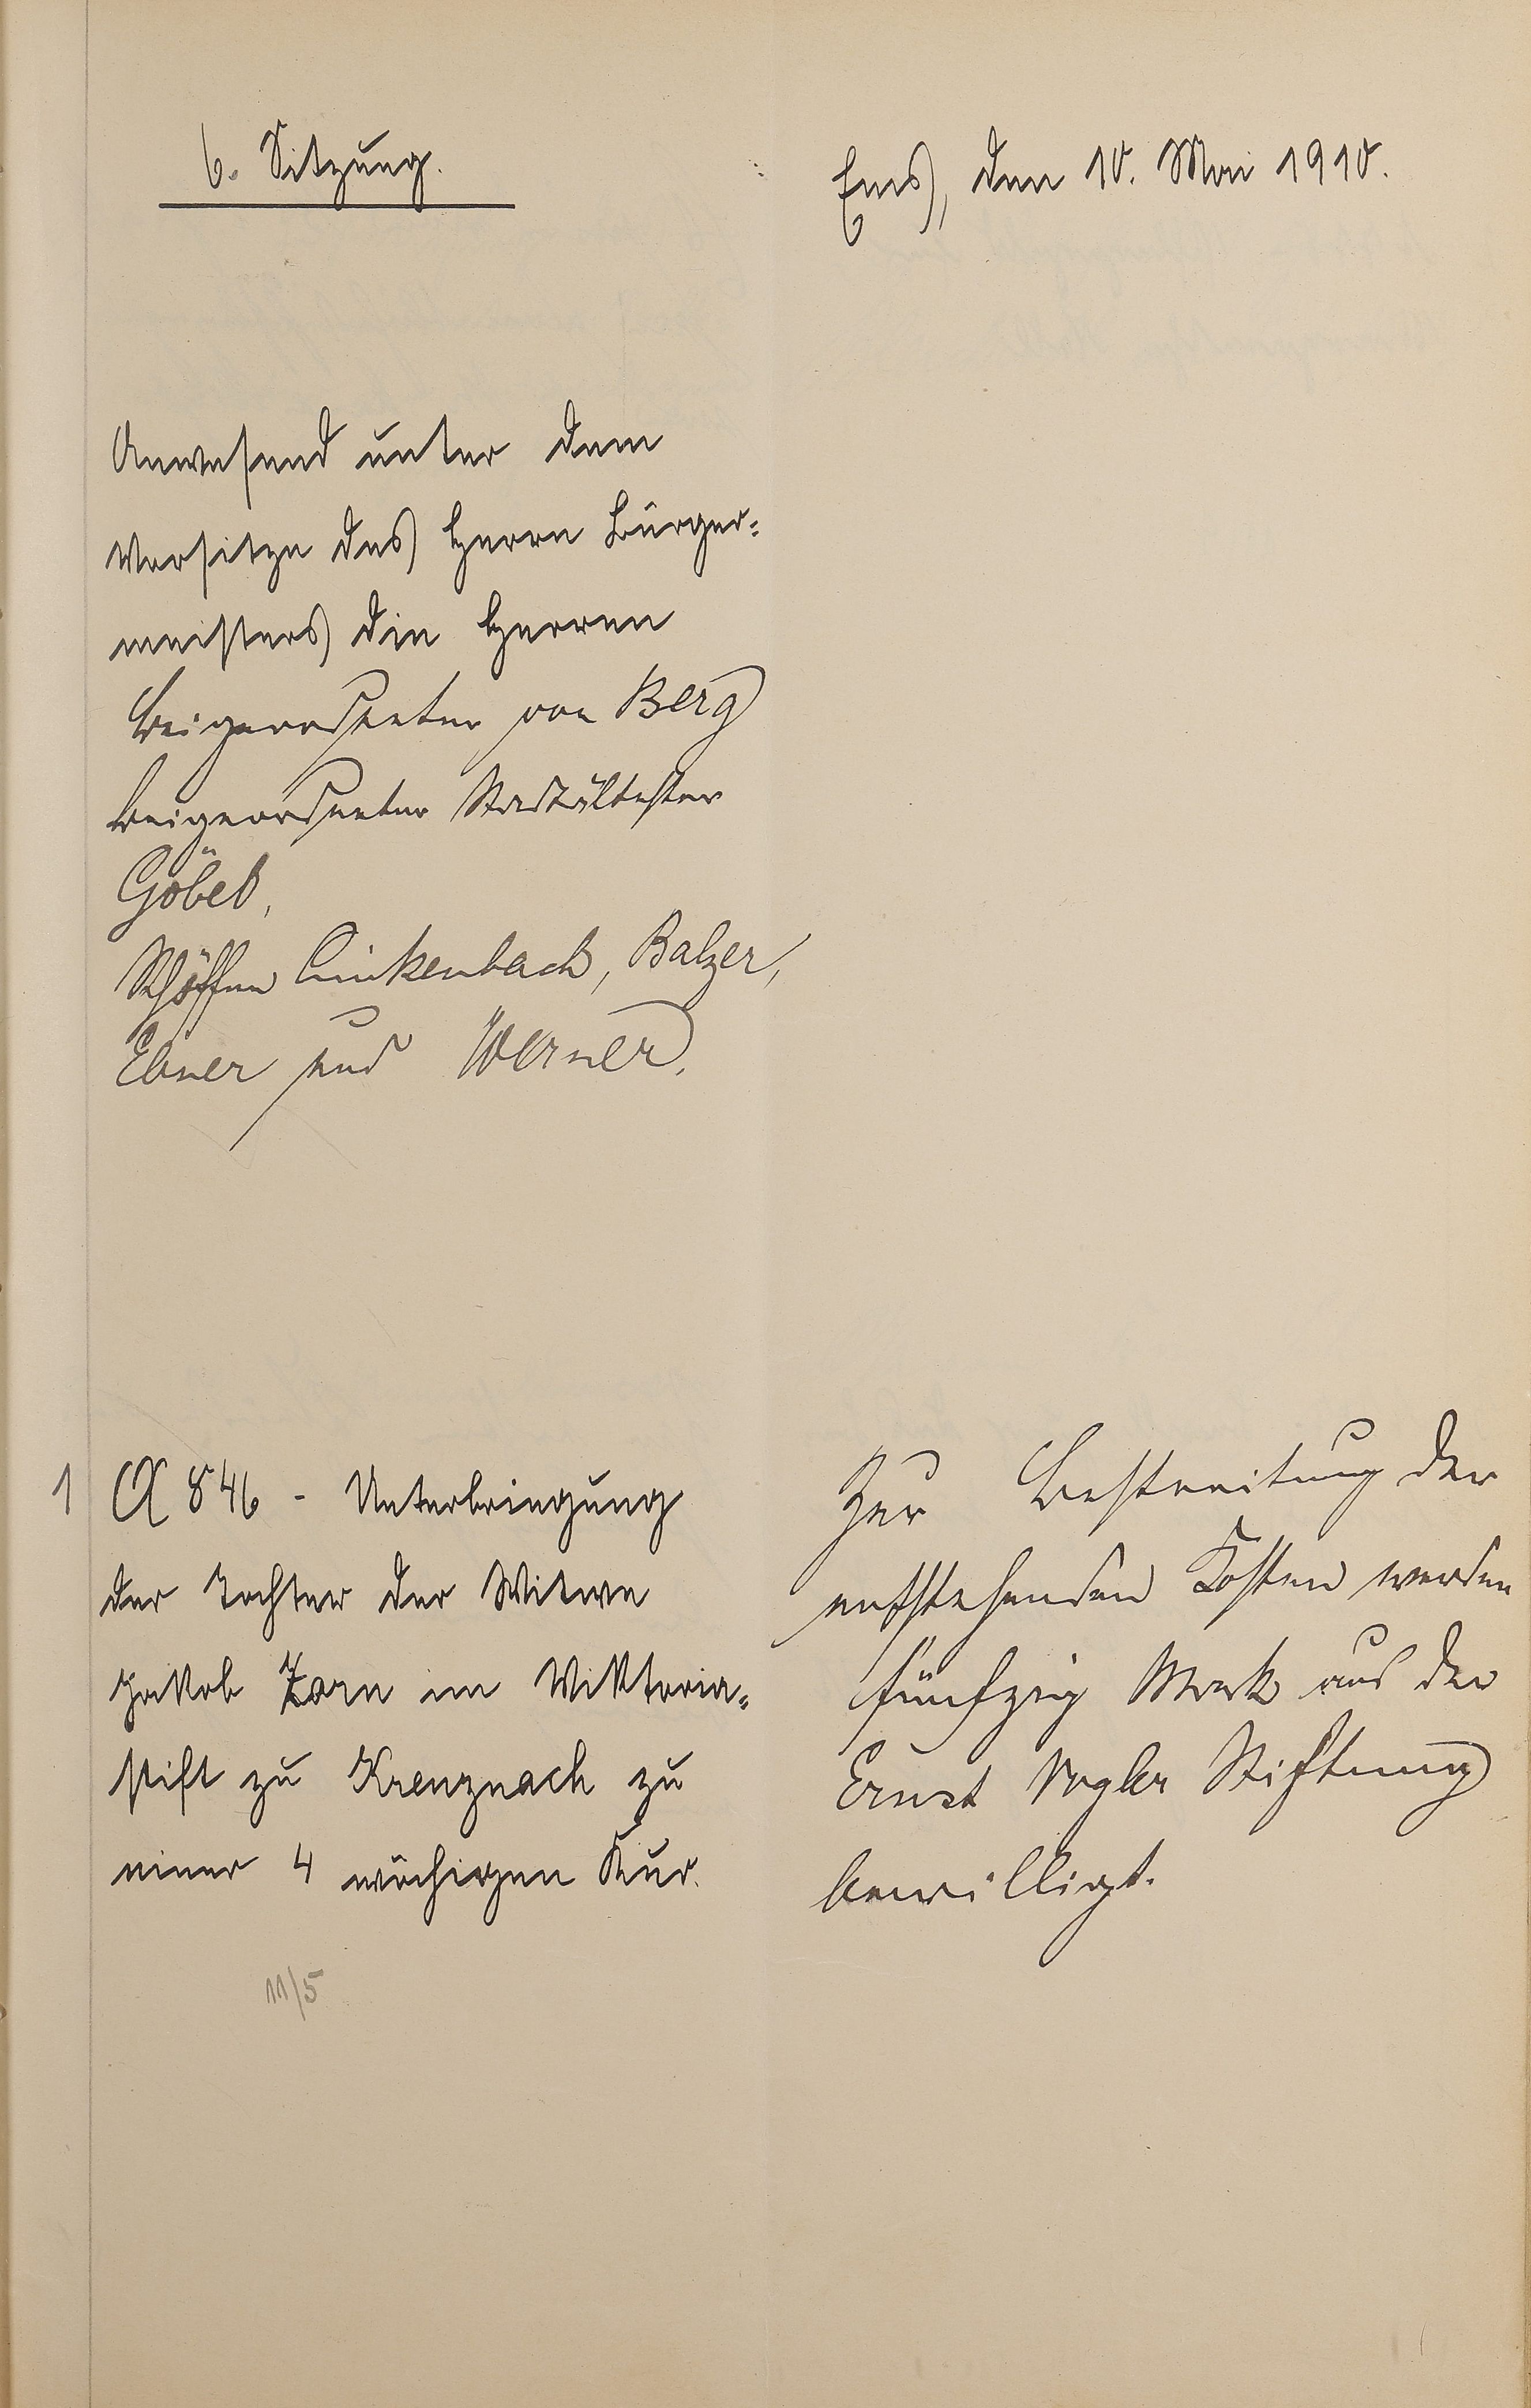 6. Sitzung.
Ems, den 10. Mai 1910.
Anwesend unter dem
Vorsitze des Herrn Bürger=
meisters die Herren
Beigeordneter von Berg
Beigeordneter Stadtältester
Göbel,
Schöffen Linkenbach, Balzer,
Ebner und Werner.
1
A 846 - Unterbringung
der Tochter der Witwe
Jakob Zorn im Viktoria=
stift zu Kreuznach zu
einer 4 wöchigen Kur.
11/5
Zur Bestreitung der
entstehenden Kosten werden
fünfzig Mark aus der
Ernst Vogler Stiftung
bewilligt.